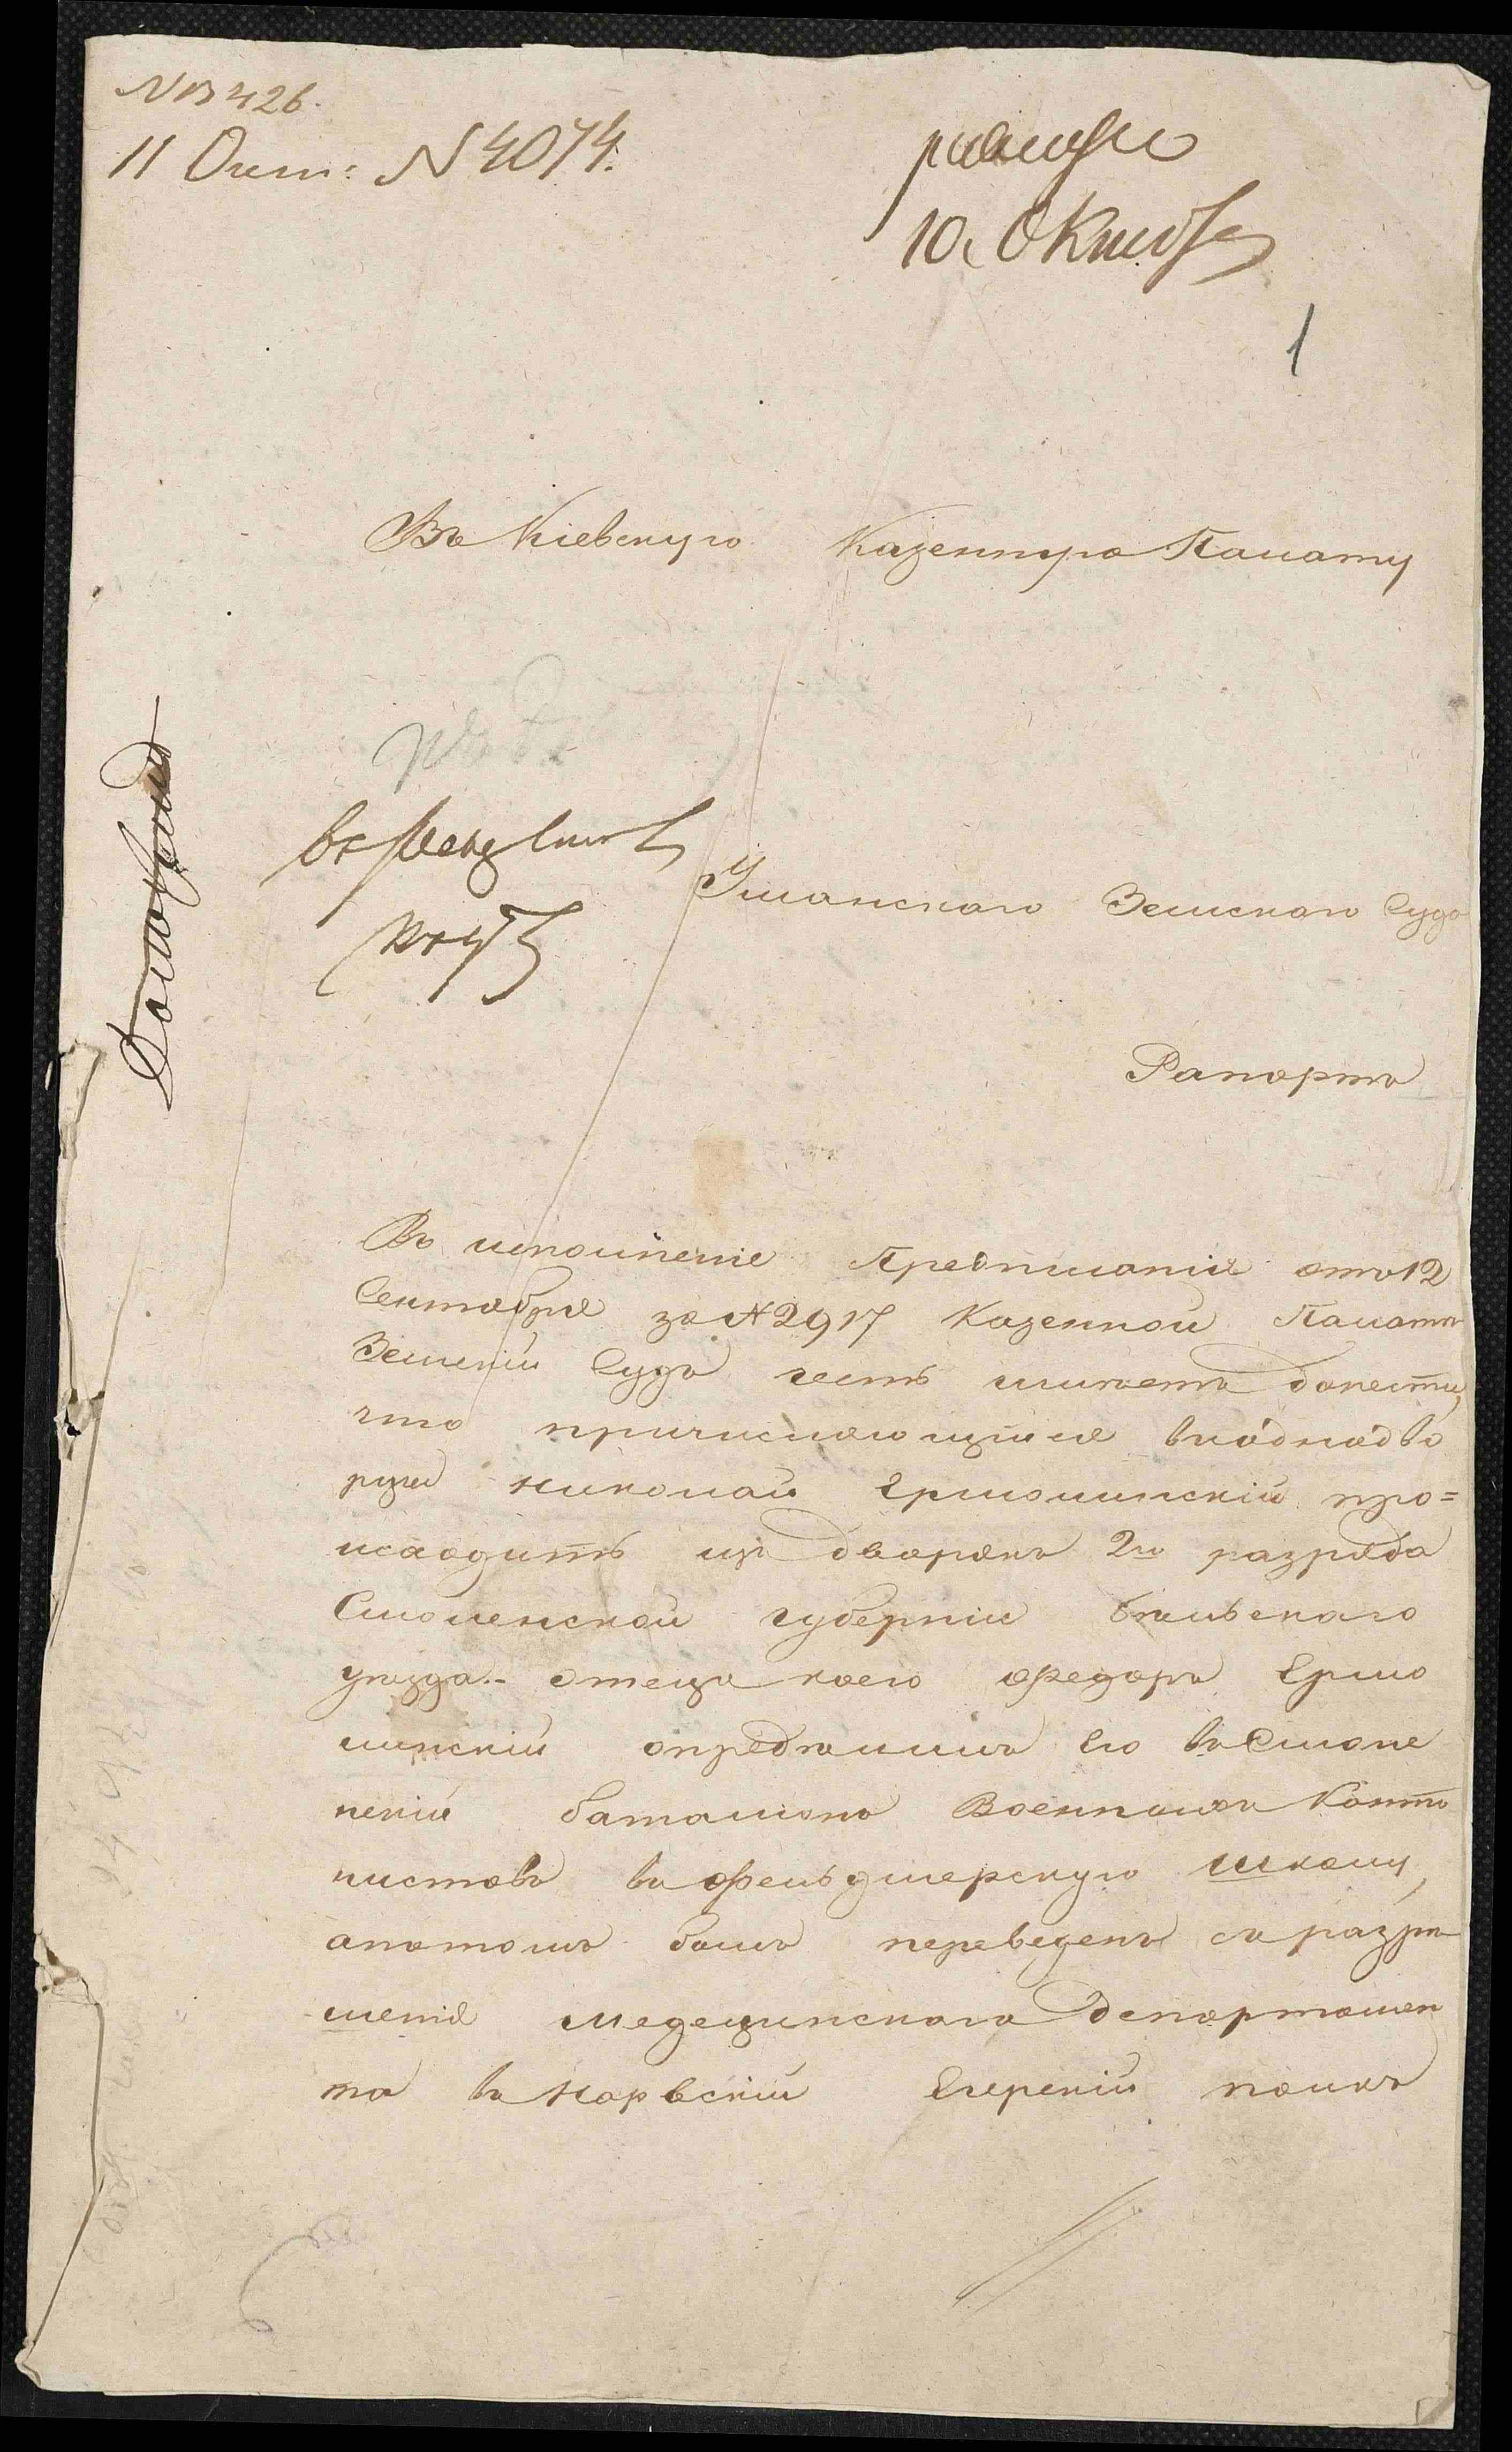 NВ 426.
11 Окт: N 4074.
10. Октяб
1
Въ Кіевскую Казенную Палату
Уманскаго Земскаго Суда
Рапортъ
Во исполненіе Предписанія отъ 12
Сентября за № 2917 Казенной Палаты
Земскій Судъ честь имѣетъ донести,
что причисляющійся въ однодво
рцы Николай Ермолинскій про=
исходитъ изъ дворянъ 2го разряда
Смоленской губерніи Бѣльскаго
уѣзда.- отецъ коего Федоръ Ермо
линскій опредѣлилъ Его въ Смоле
нскій баталіонъ Военныхъ Канто
нистовъ въ Фельдшерскую школу,
апотомъ былъ переведенъ съ разрѣ
шенія Медецинскаго Департамен
та въ Нарвскій Егерскій полкъ